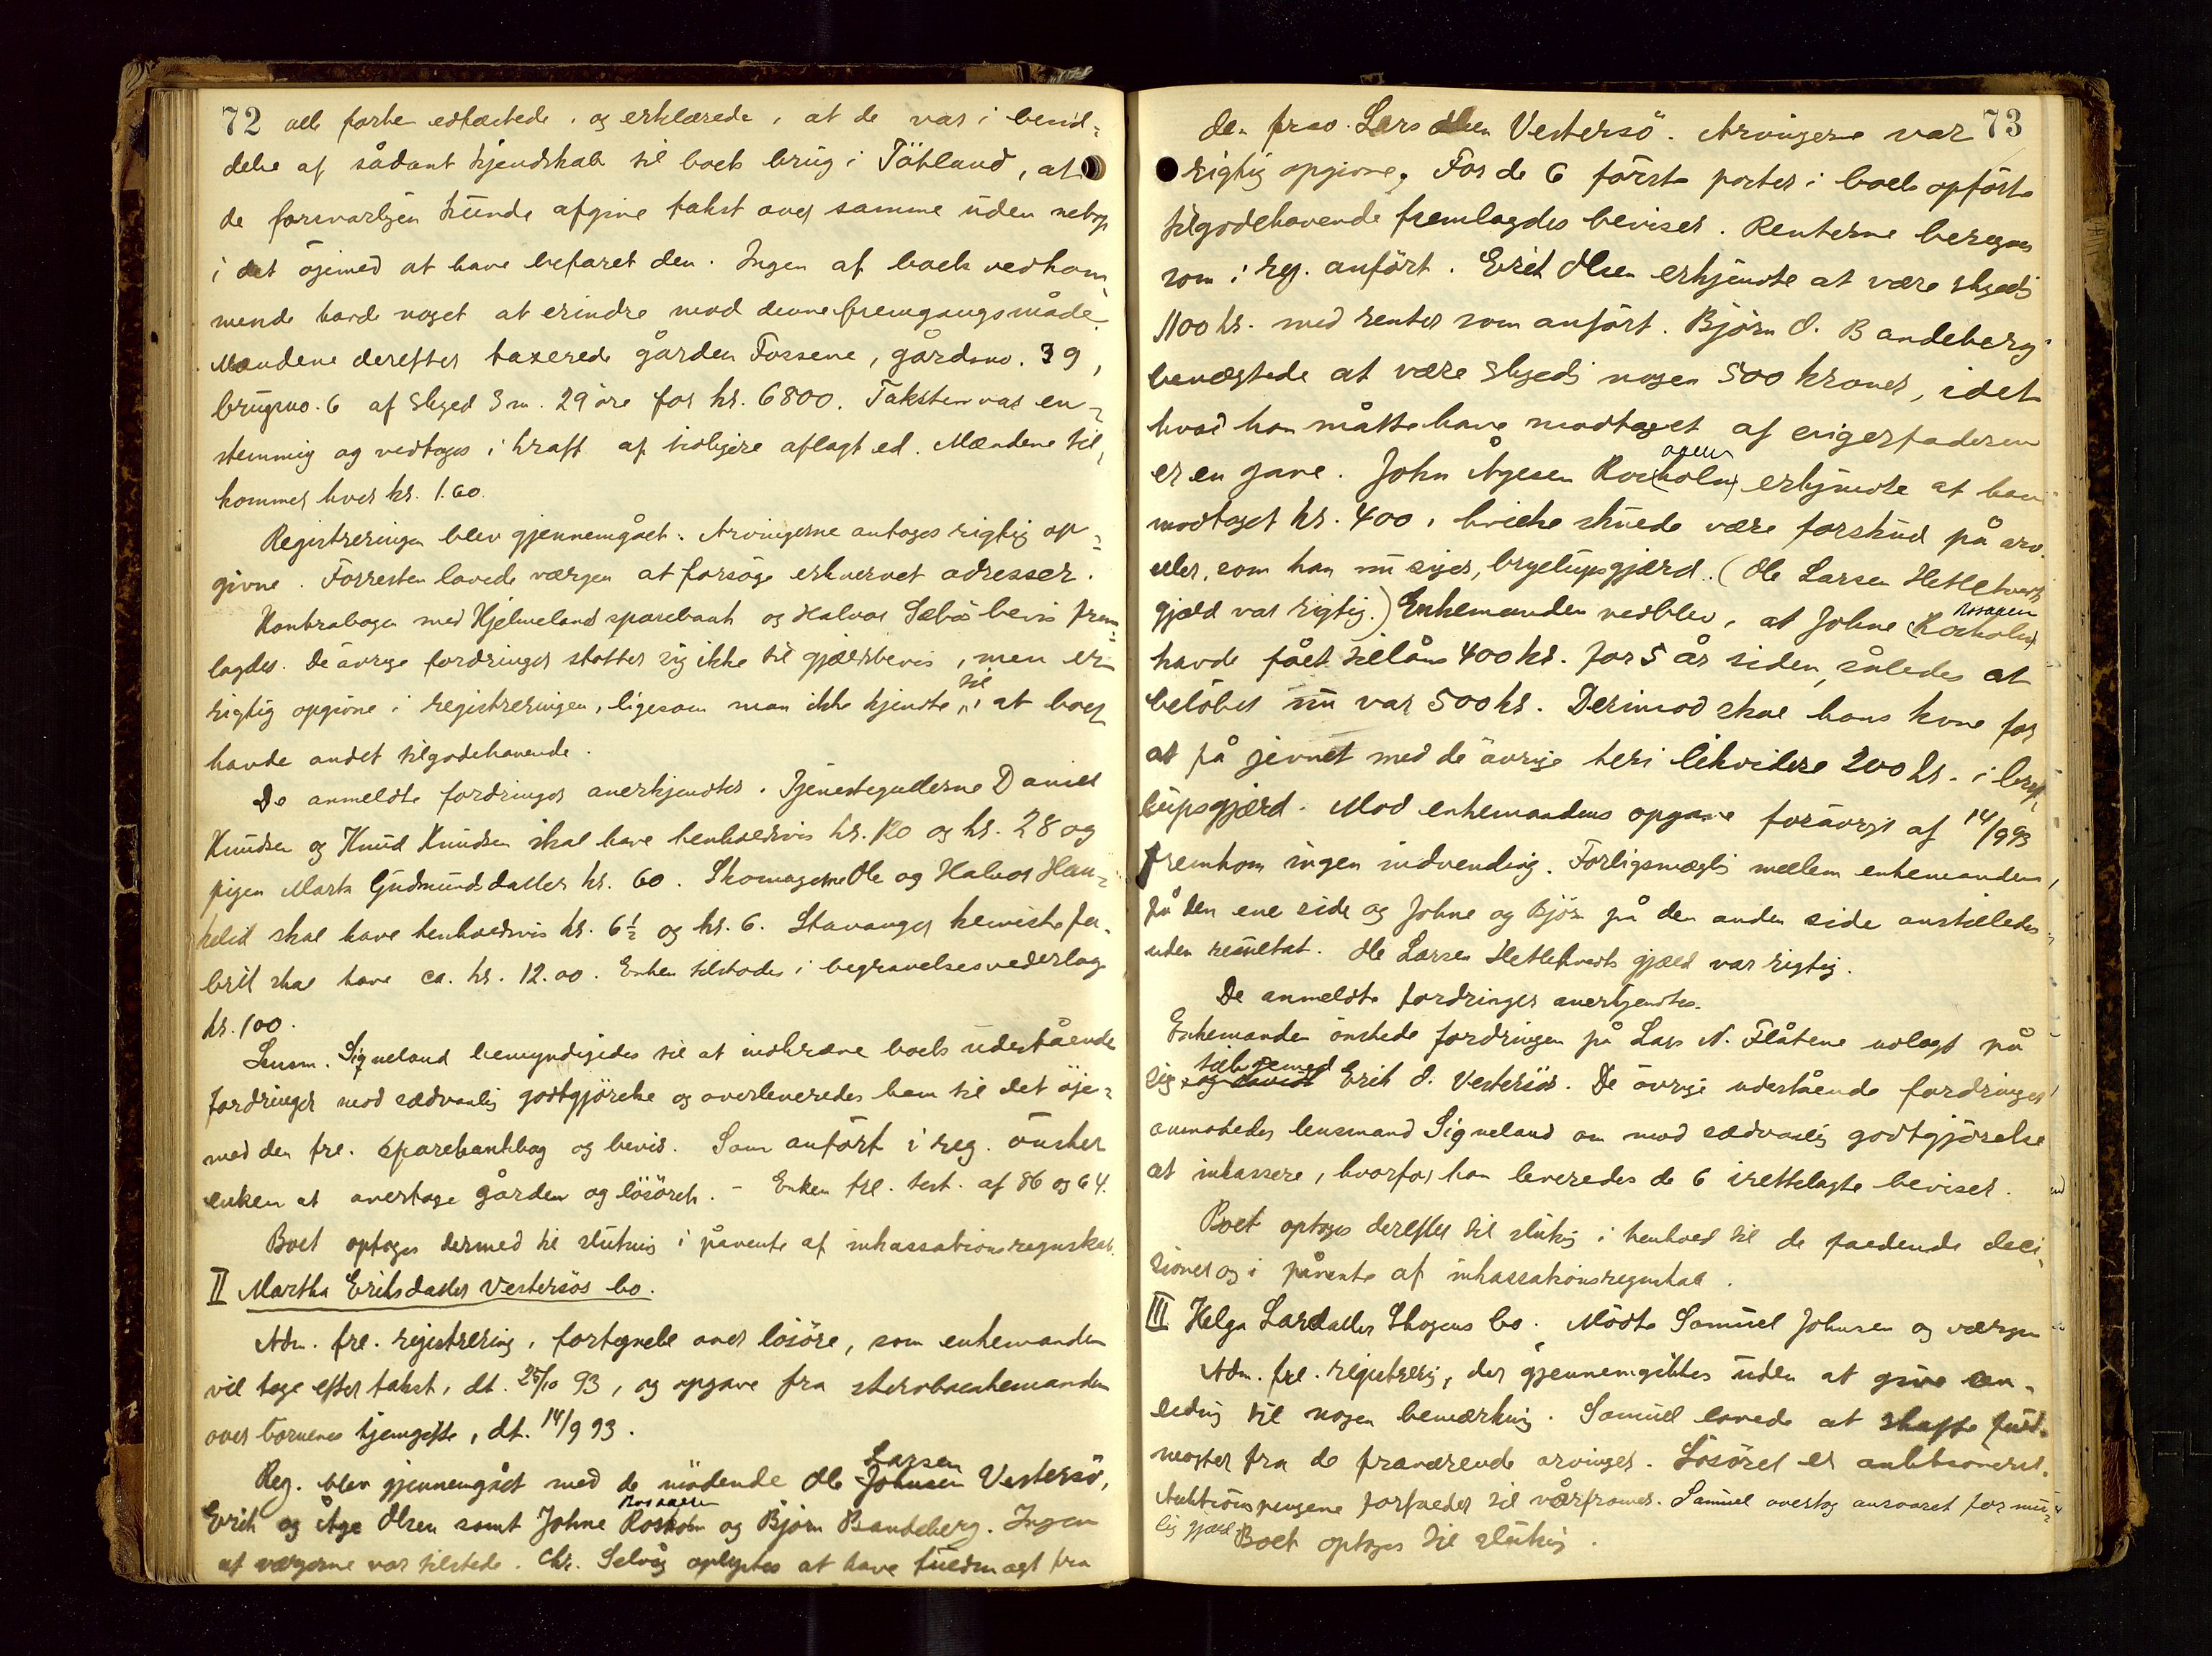 72 alle forhen edfæstede, og erklærede, at de var i besid-
delse af sådant kjendskab til boets brug i Tøtland, at
de forsvarligen kunde afgive takst over samme uden netop
i det øjemed at have befaret den. Ingen af boets vedkom-
mende havde noget at erindre mod denne fremgangsmåde.
Mændene derefter taxerede gården Fossene, gårdsno. 39,
brugsno. 6 af skyld 3 m. 29 øre for kr. 6800. Taksten var en-
stemmig og vedtoges i kraft af tidligere aflagt ed. Mændene til-
kommer hver kr. 1.60.
Registreringen blev gjennemgået. Arvingerne antages rigtig op-
givne. Forresten lovede værgen at forsøge erhvervet adresser.
Kontrabogen med Hjelmeland sparebank og Halvor Sæbøs bevis frem-
lagdes. De øvrige fordringer støtter sig ikke til gjældsbevis, men er
rigtig opgivne i registreringen, ligesom man ikke kjendte til, at boet
havde andet tilgodehavende.
De anmeldte fordringer anerkjendtes. Tjenestegutterne Daniel
Knudsen og Knud Knudsen skal have henholdsvis kr. 120 og kr. 28 og
pigen Marta Gudmundsdatter kr. 60. Skomagerne Ole og Halvor Hau-
kelid skal have henholdsvis kr. 6½ og kr. 6. Stavanger kemiske fa-
brik skal have ca. kr. 12.00. Enken tilstodes i begravelsesvederlag
kr. 100.
Lensm. Signeland bemyndigedes til at indkræve boets udestående
fordringer mod sædvanlig godtgjørelse og overleveredes ham til det øje-
med den fre. sparebankbog og bevis. Som anført i reg. ønsker
enken at overtage gården og løsøret. – Enken fre. test. af 86 og 64.
Boet optoges dermed til slutning i påvente af inkassationsregnskab.
II Martha Eriksdatter Vestersøs bo.
Adm. fre. registrering, fortegnelse over løsøre, som enkemanden
vil tage efter takst, dt. 25/10 93, og opgave fra sterboenkemanden
over børnenes hjemgifte, dt. 14/9 93.
Larsen
Reg. blev gjennemgået med de mødende Ole Johnsen Vestersø,
Erik og Åge Olsen samt Johne Rosholm og Bjørn Bandeberg. Ingen
af værgerne var tilstede. Chr. Selvåg oplystes at have fuldmagt fra
73
den frav. Lars Olsen Vestersø. Arvingerne var
rigtig opgivne. For de 6 første poster i boets opførte
tilgodehavende fremlagdes beviser. Renterne beregnes
som i reg. anført. Erik Olsen erkjendte at være skyldig
1100 kr. med renter som anført. Bjørn O. Bandeberg
benægtede at være skyldig nogen 500 kroner, idet
hvad han måtte have modtaget af svigerfaderen
er en gave. John Ågesen (Rosholm) erkjendte at have
modtaget kr. 400, hvilke skulde være forskud på arv
eller, som han nu siger, bryllupsgjærd. (Ole Larsen Hetletvedts
gjæld var rigtig.) Enkemanden vedblev, at Johne (Rosholm)
havde fået tillåns 400 kr. for 5 år siden, således at
beløbet nu var 500 kr. Derimod skal hans kone for
at få jevnet med de øvrige heri likvidere 200 kr. i bryl-
lupsgjærd. Mod enkemandens opgave forøvrigt af 14/9 93
fremkom ingen indvending. Forligsmægling mellem enkemanden
på den ene side og Johne og Bjørn på den anden side anstilledes
uden resultat. Ole Larsen Hetletvedts gjæld var rigtig.
De anmeldte fordringer anerkjendtes.
Enkemanden ønskede fordringen på Lars N. Flåtene udlagt på
sig Erik O. Vestersøs. De øvrige udestående fordringer
anmodedes lensmand Signeland om mod sædvanlig godtgjørelse
at inkassere, hvorfor han leveredes de 6 irettelagte beviser.
Boet optoges derefter til slutnig i henhold til de faldende deci-
sioner og i påvente af inkassationsregnskab.
III Helga Larsdatter Skogens bo. Mødte Samuel Johnsen og værgen
Adm. fre. registrerig, der gjennemgikkes uden at give an-
lednig til nogen bemærknig. Samuel lovede at skaffe fuld-
magter fra de fraværende arvinger. Løsøret er auktioneret.
Auktionspengene forfalder til vårfromes. Samuel overtog ansvaret for mu-
lig gjæld. Boet optoges til slutnig.